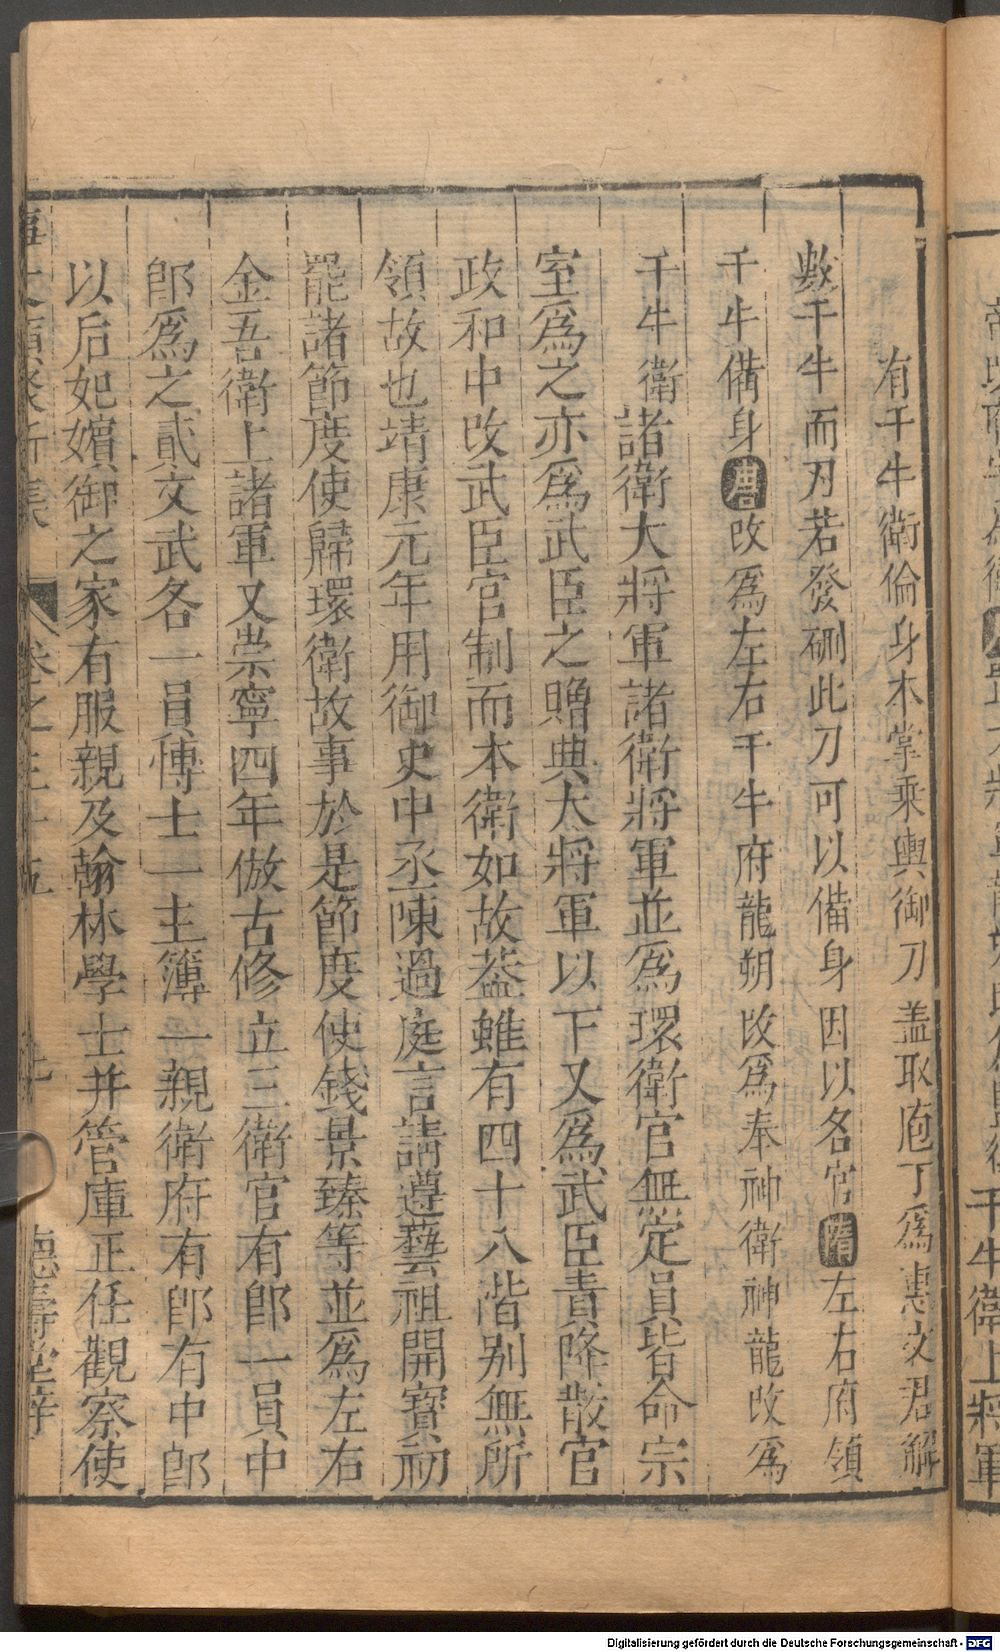 有千牛衛倫身本掌乘輿御刀盖取庖丁爲惠文君解
數千牛而刃若發硎此刀可以備身因以各官隋左右府領
千牛備身唐改爲左右千牛府龍朔改爲奉神衛神龍改爲
千牛衛諸衛大將軍諸衛將軍並爲環衛官無定員皆命宗
室爲之亦爲武臣之贈典大將軍以下又爲武臣責降散官
政和中改武臣官制而本衛如故蓋雖有四十八階别無所
領故也靖康元年用御史中丞陳過庭言請遵藝祖開寳初
罷諸節度使歸環衛故事於是節度使錢景臻等並爲左右
金吾衛上諸軍又崇寧四年倣古修立三衛官有郎一員中
郎爲之貳文武各一員博士一主簿一親衛府有郎有中郎
以后妃嬪御之家有服親及翰林學士并管庫正任觀察使
卷之三十五
德壽堂梓
千牛衛上將軍
Digitalisierung gefördert durch die Deutsche Forschungsgemeinschaft - DFG